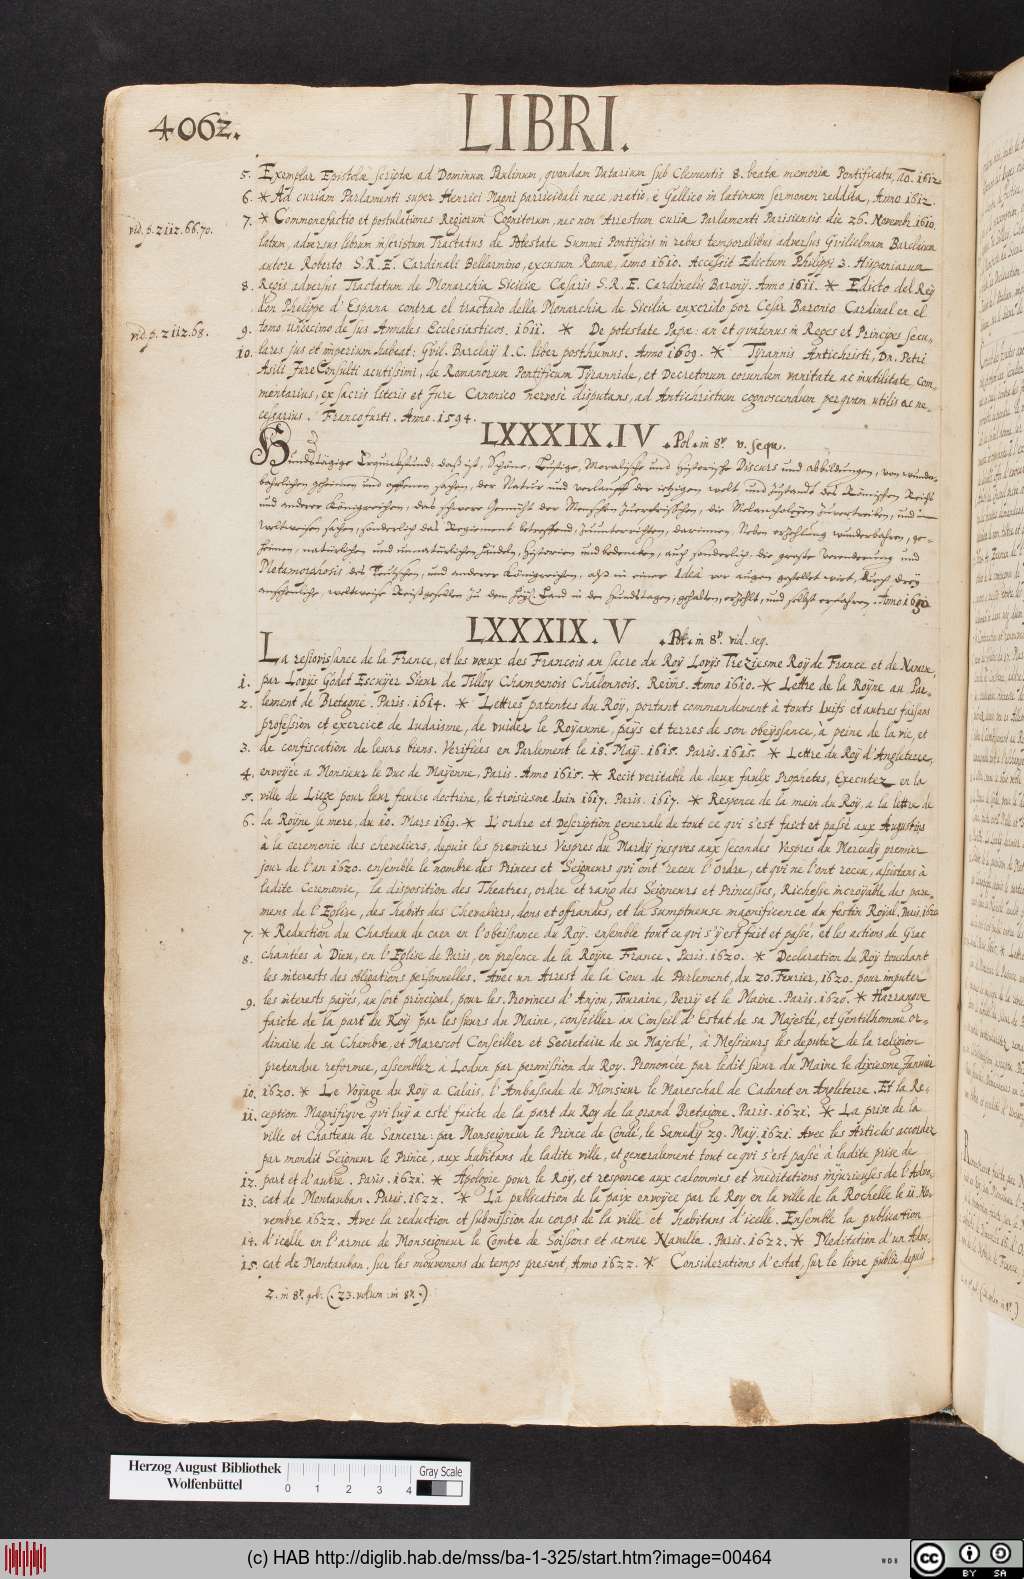 4062.
LIBRI.
5. Exemplar Epistolæ scriptæ ad Dominum Paulinum, qvondam Datarium sub Clementis 8. beatæ memoriæ Pontificatu, ão. 1612
6. * Ad curiam Parlamenti super Henrici Magni parricidali nece, oratio, è Gallico in latinum sermonem reddita, Anno 1612.
vid. p. 2112. 66. 70.
7. * Commonefactio et postulationes Regiorum Cognitorum, nec non Arrestum curiæ Parlamenti Parisiensis die 26. Novembr. 1610.
latum, adversus librum inscriptum Tractatus de Potestate Summi Pontificis in rebus temporalibus adversus Gvilielmum Barclaium
autore Roberto S. R. E. Cardinali Bellarmino, excusum Romæ, anno 1610. Accessit Edictum Philippi 3. Hispaniarum
8. Regis adversus Tractatum de Monarchia Siciliæ Cæsaris S. R. E. Cardinalis Baronij. Anno 1611. * Edicto del Rey
don Phelippe d' Espana contra el tractado della Monarchia de Sicilia enxerido por Cesar Baronio Cardinal en el
vid. p. 2112. 68.
9. tomo Undecimo de sus Annales Ecclesiasticos. 1611. * De potestate Papæ: an et qvatenus in Reges et Principes secu=
10. lares jus et imperium habeat: Gvil. Barclaÿ I. C. liber posthumus. Anno 1609. * Tÿrannis Antichristi, Dn. Petri
Asili JureConsulti acutissimi, de Romanorum Pontificum Tÿrannide, et Decretorum eorundem vanitate ac inutilitate, com=
mentarius, ex sacris literis et Jure Canonico nervosè disputans, ad Antichristum cognoscendum perqvam utilis ac ne=
cessarius. Francofurti. Anno. 1594.
LXXXIX. IV . Pol. in 8º. v. seqq.
Hundstägige Erquickstund: daß ist, Schöne, Lustige, Moralische und Historische Discurs und abbildungen, von wunder=
bahrlichen geheimen und offenen sachen, der Natur und verlauff der ietzigen welt und zustandt des Römischen Reichs
und anderer Königreichen, das schwere Gemüth der Menschen zuerfrischen, die Melancholeÿen zuvertreiben, und in
weltweisen sachen, sonderlich das Regiment betreffend, zuunterrichten, darinnen Neben erzehlung wunderbahren, ge=
heimen, natürlichen und unnatürlichen Händeln, Historien und bedencken, auch sonderlich die große veränderung und
Metamorphosis des Teutschen, und anderer Königreichen, alß in einer Idea vor augen gestellet wirt, durch dreÿ
ansehenliche, weltweise Reißgesellen zu dem Heÿl. Land in den Hundstagen, gehalten, erzehlt, und selbst erfahren. Anno 1650
LXXXIX. V . Pol. in 8º. vid. seq.
La resjovissance de la France, et les vœux des Francois au sacre du Roÿ Lovÿs Treziesme Roÿ de France et de Navarre,
1. par Lovÿs Godet Escuÿer Sieur de Tilloy Champenois Chalonnois. Reims. Anno 1610. * Lettre de la Roÿne au Par=
2. lement de Bretagne. Paris. 1614. * Lettres patentes du Roÿ, portant commandement à touts Juifs et autres faisans
profession et exercice de Iudaisme, de vuider le Roÿaume, paÿs et terres de son obeÿssance, à peine de la vie, et
3. de confiscation de leurs biens. Verifiées en Parlement le 18. Maÿ. 1615. Paris. 1615. * Lettre du Roÿ d'Angleterre,
4. envoÿée a Monsieur le Duc de Maÿenne, Paris. Anno 1615. * Recit veritable de deux faulx Prophetes, Executez en la
5. ville de Liege pour leur faulse doctrine, le troisiesme Iuin 1617. Paris. 1617. * Responce de la main du Roÿ, a la lettre de
6. la Roÿne sa mere, du 10. Mars 1619. * L'ordre et Description generale de tout ce qvi s'est faict et passé aux Augustins
à la ceremonie des chevaliers, depuis les premieres Vespres du Mardÿ jusqves aux secondes Vespres du Mercedÿ premier
jour de l'an 1620. ensemble le nombre des Princes et Seigneurs qvi ont receu l'Ordre, et qvi ne l'ont receu, assistans à
ladite Ceremonie, la disposition des Theatres, ordre et rang des Seigneurs et Princesses, Richesse incroÿable des pare=
mens de l'Eglise, des habits des Chevaliers, dons et offrandes, et la sumptueuse magnificence du festin Roÿal. Paris. 1620
7. * Reduction du Chasteau de caen en l'obeissance du Roÿ. ensemble tout ce qvi s'ÿ est fait et passé, et les actions de Grac
8. chantées à Dieu, en l'Eglise de Paris, en presence de la Roÿne France. Paris. 1620. * Declaration du Roÿ touchant
les interests des obligations personnelles. Avec un Arrest de la Cour de Parlement, du 20. Fevrier, 1620. pour imputer
9. les interests paÿés, au sort principal, pour les Provinces d'Anjou, Touraine, Berrÿ et le Maine. Paris. 1620. * Harrangve
faicte de la part du Roÿ par les sieurs du Maine, conseiller au Conseil d'Estat de sa Majesté, et Gentilhomme or=
dinaire de sa Chambre, et Marescot Conseiller et Secretaire de sa Majesté, à Messieurs les deputez de la religion
pretendue reformée, assemblez à Lodun par permission du Roÿ. Prononcée par ledit sieur du Maine le dixiesme Janvier
10. 1620. * Le Voÿage du Roÿ a Calais, l'Ambassade de Monsieur le Mareschal de Cadenet en Angleterre. Et la Re=
11. ception Magnifiqve qvi luÿ a esté faicte de la part du Roy de la grand Bretaigne. Paris. 1621. * La prise de la
ville et Chasteau de Sancerre: par Monseigneur le Prince de Condé, le Samedÿ 29. Maÿ. 1621. Avec les Articles accordez
par mondit Seigneur le Prince, aux habitans de ladite ville, et generalement tout ce qvi s'est passé à ladite prise de
12. part et d'autre. Paris. 1621. * Apologie pour le Roÿ, et responce aux calomnies et meditations injurieuses de l'Advo=
13. cat de Montauban. Paris. 1622. * La publication de la paix envoÿée par le Roy en la ville de la Rochelle le 11. No=
vembre 1622. Avec la reduction et submission du corps de la ville et habitans d'icelle. Ensemble la publication
14. d'icelle en l'armee de Monseigneur le Comte de Soissons et armee Navalle. Paris. 1622. * Meditation d'un Advo=
15. cat de Montauban, sur les mouvemens du temps present, Anno 1622. * Considerations d'estat, sur le livre publié depuis
2. in 8º. geb. (. 23. volum. in 8º.)
Herzog August Bibliothek
Wolfenbüttel
0 1 2 3 4
Gray Scale
(c) HAB http://diglib.hab.de/mss/ba-1-325/start.htm?image=00464
WDB
cc BY SA